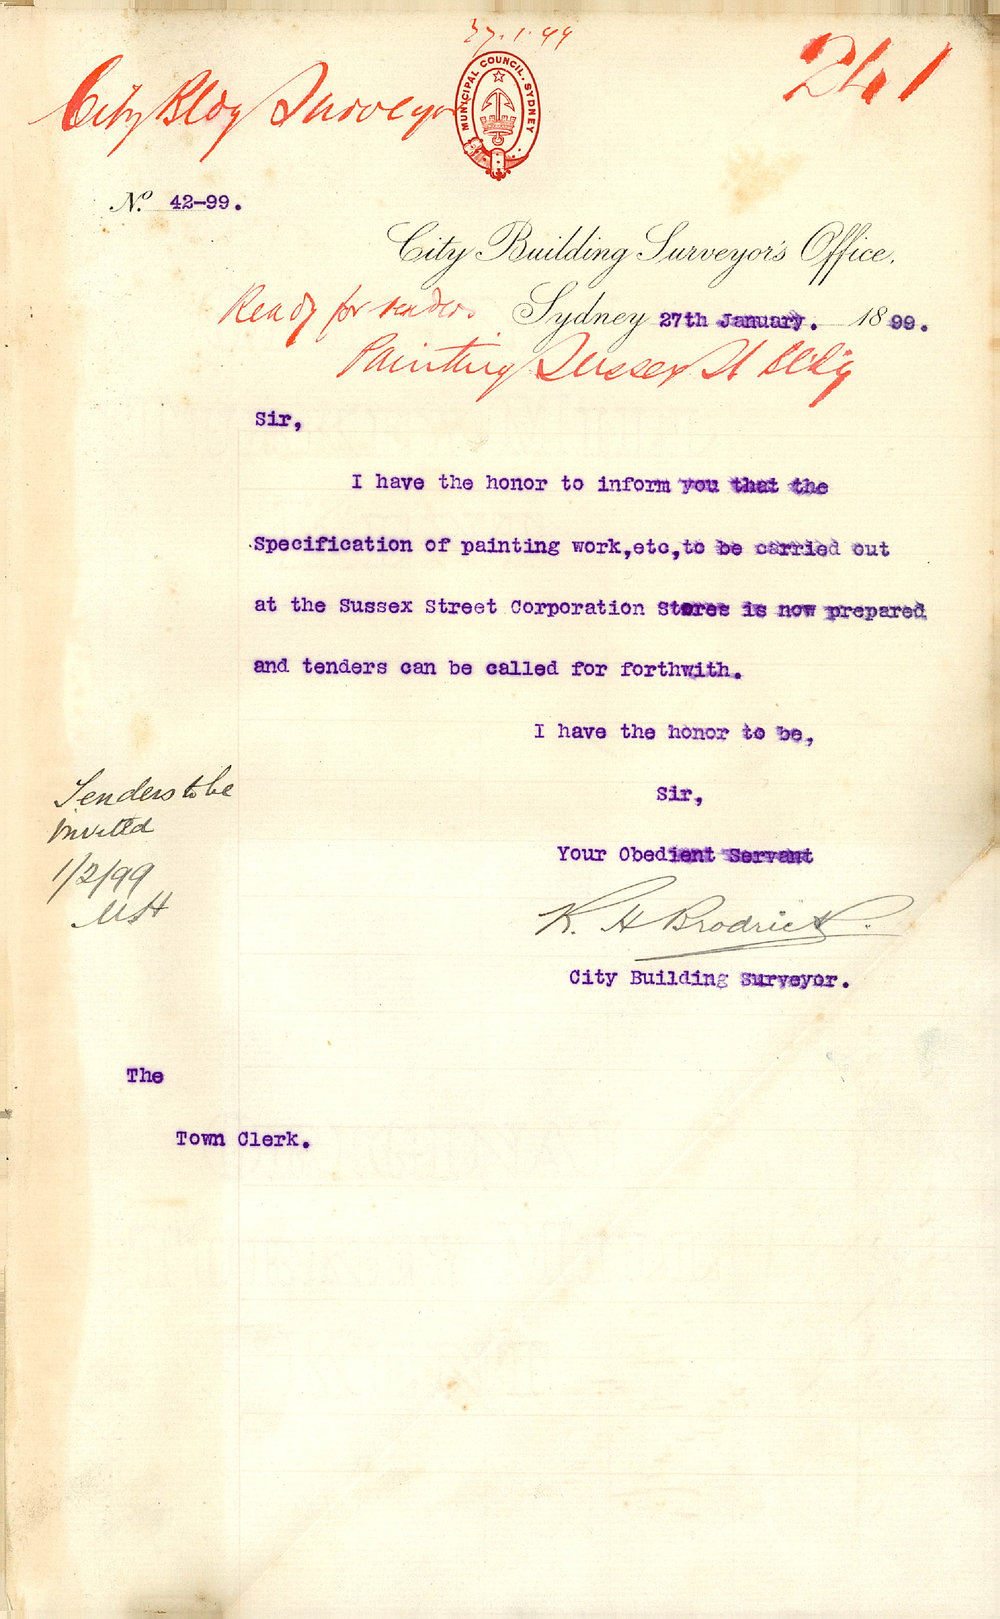 27.1.99
241
City Bldg Surveyor
MUNICIPAL COUNCIL. SYDNEY
No. 42-99.
City Building Surveyor's Office,
Ready for tenders
Sydney 27th January. 1899.
Painting Sussex St Bldg
Sir,
I have the honor to inform you that the
Specification of painting work,etc,to be carried out
at the Sussex Street Corporation Stores is now prepared
and tenders can be called for forthwith.
I have the honor to be,
Sir,
Tenders to be
invited
1/2/99
Your Obedient Servant
R. H Brodrick.
City Building Surveyor.
The
Town Clerk.